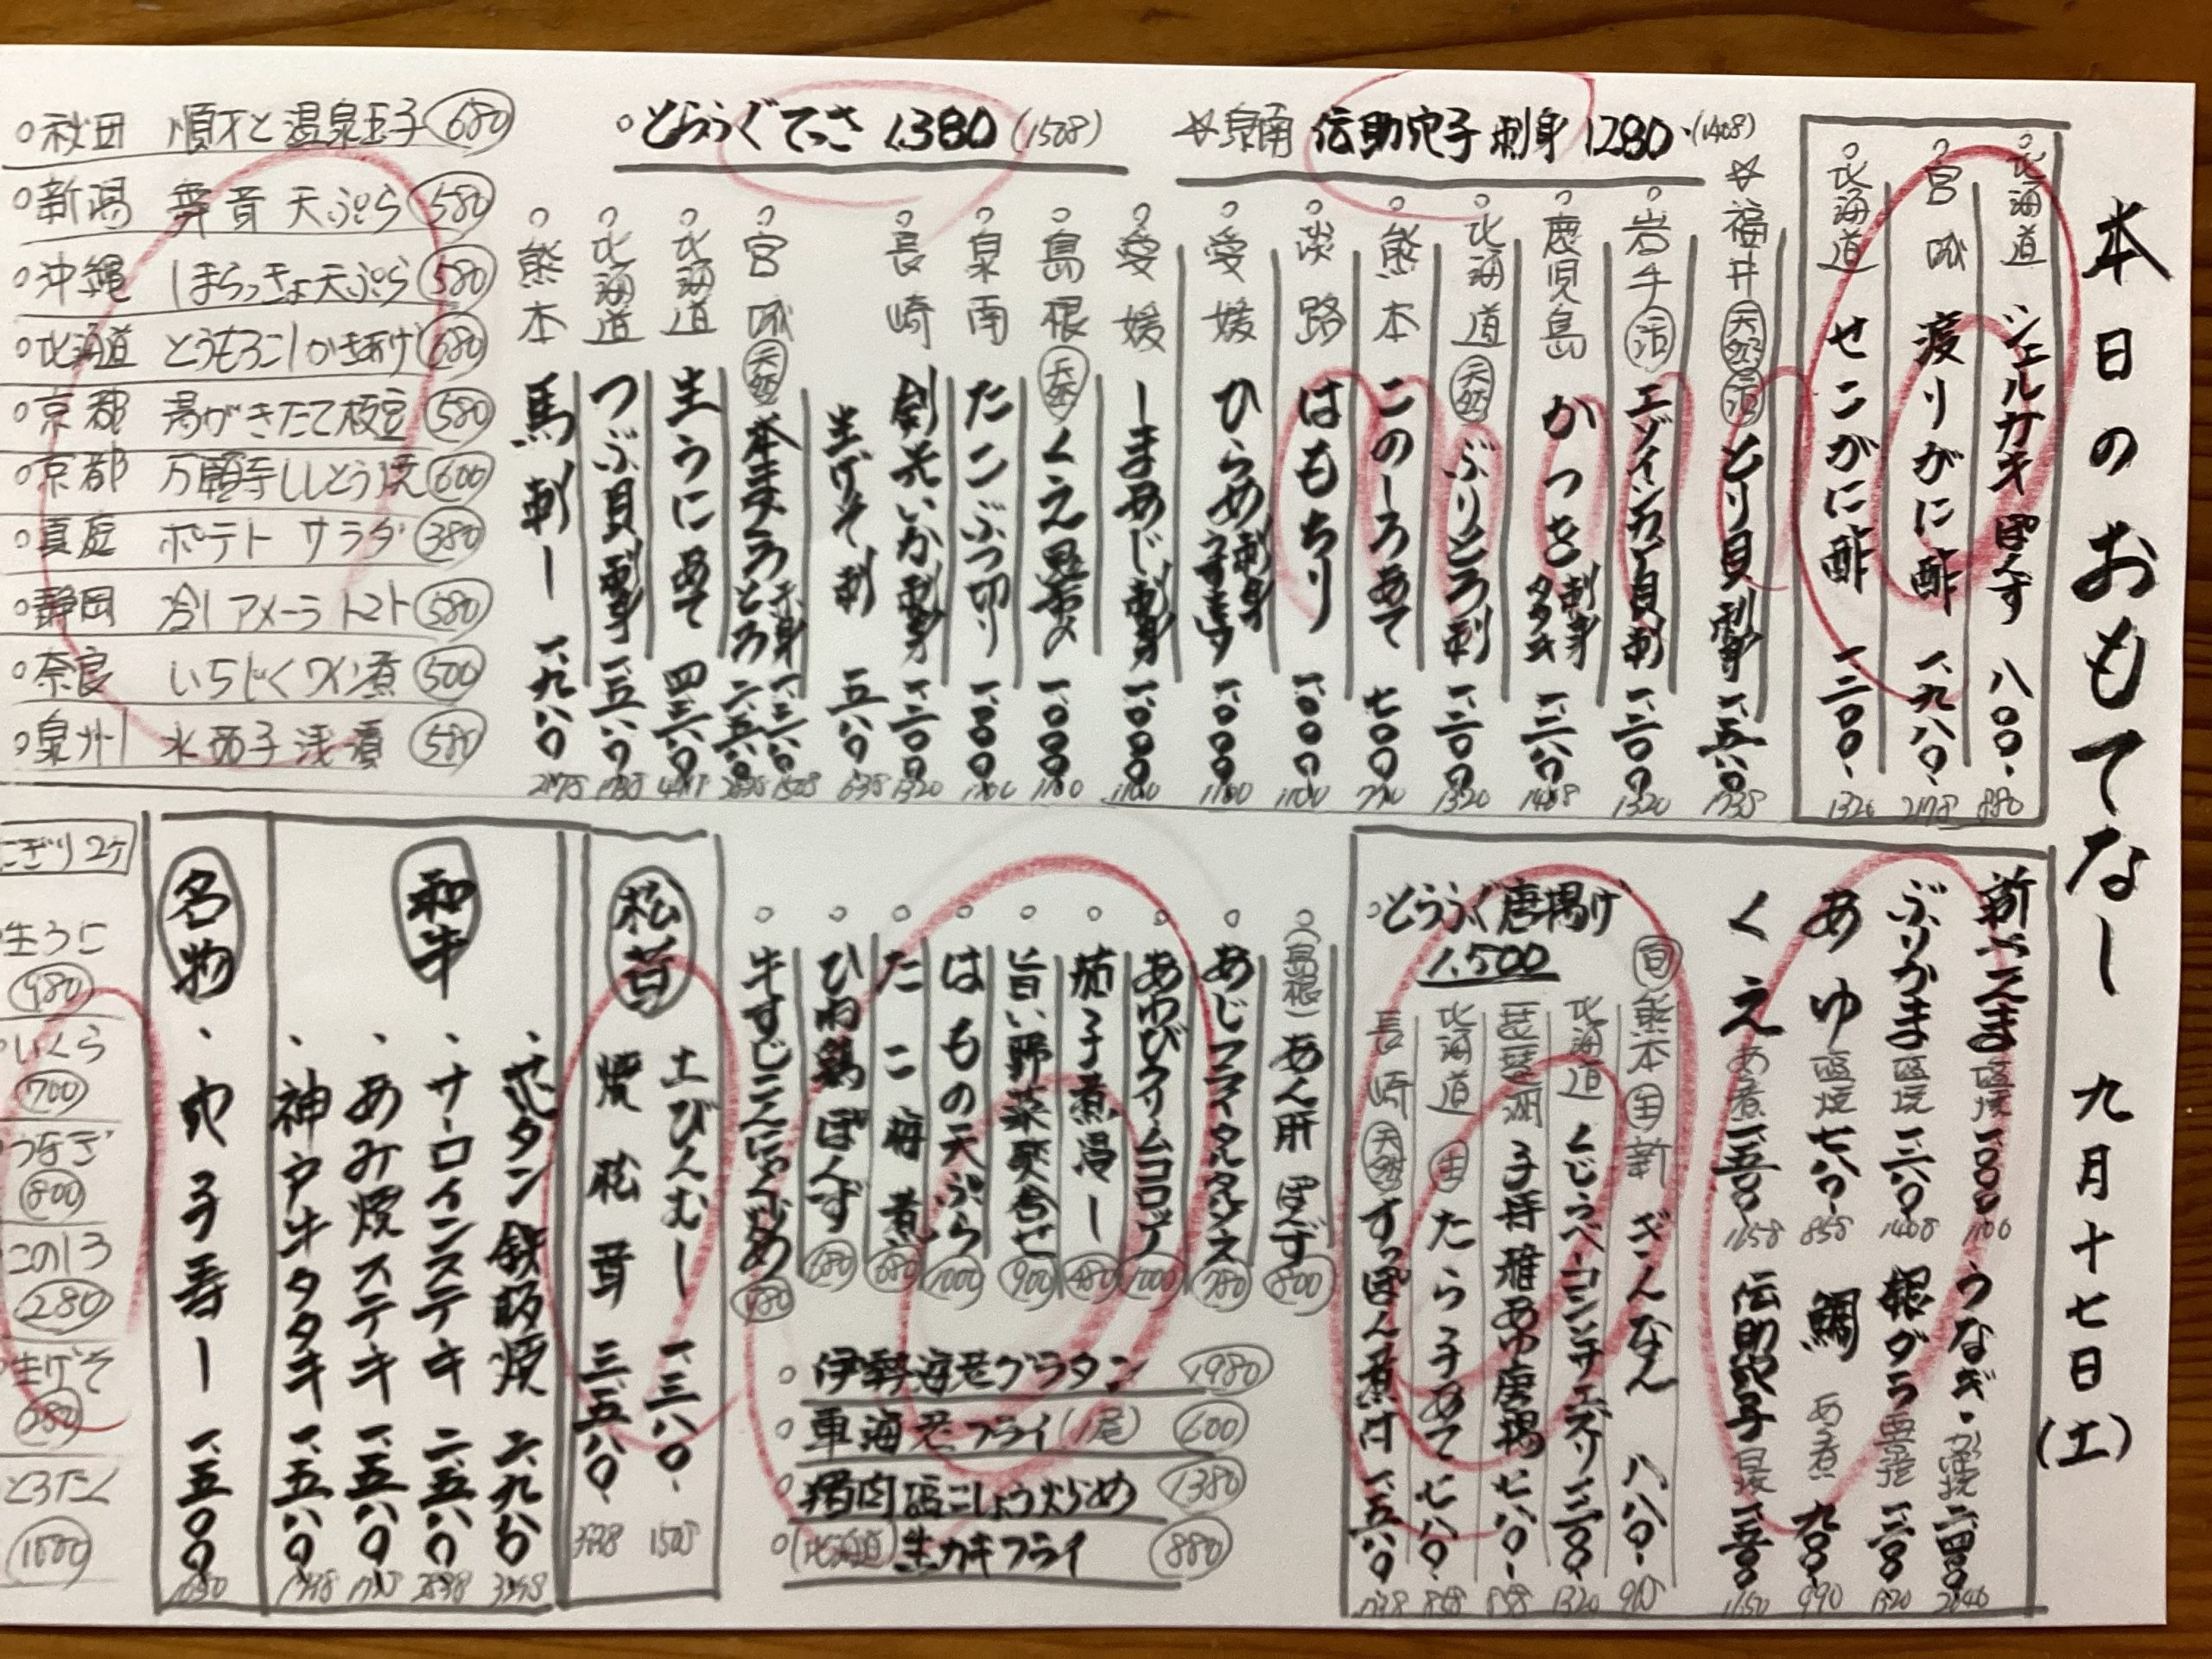 本日のおもてなし 九月十七日(土)
北海道 シェルカキ ぽんず 八〇〇 880
宮城 渡りがに酢 一、九八〇 2178
北海道 せこがに酢 一二〇〇 1320
☆泉南 伝助穴子 刺身 1280 (1408)
とらふぐてっさ 1.380 (1508)
☆福井 天然 活 とり貝刺身 一、五八〇 1738
岩手 活 エゾイシカゲ貝刺 一、二〇〇 1320
鹿児島 かつを 刺身 タタキ 一、二八〇 1408
北海道 天然 ぶりとろ刺 一、二〇〇 1320
熊本 このしろあて 七〇〇 770
淡路 はもちり 一、〇〇〇 1100
愛媛 ひらめ 刺身 一、〇〇〇 1100
愛媛 しまあじ刺身 一、〇〇〇 1100
島根 天然 くえ 一、〇〇〇 1100
泉南 たこぶつ切り 一、〇〇〇 1100
長崎 剣先いか刺身 一、二〇〇 1320
生げそ刺 五八〇 638
宮城 天然 本まぐろ 赤身 とろ
北海道 生うにあて
北海道 つぶ貝刺身 一、五八〇 1738
熊本 馬刺し 一、九八〇 2178
秋田 順才と温泉玉子 680
新潟 舞茸 天ぷら 580
沖縄 しまらっきょ天ぷら 580
北海道 とうもろこしかきあげ 680
京都 湯がきたて枝豆 580
京都 万願寺ししとう焼 600
真庭 ポテト サラダ 380
静岡 冷しアメーラ トマト 580
奈良 いちじくワイン煮 500
泉州 水茄子浅漬 580
新さんま 塩焼 一、〇〇〇 1100
ぶりかま 塩焼 一、二八〇 1408
あゆ 塩焼 七八〇 858
くえ あら煮
うなぎ
銀だら 西京焼 一、二〇〇 1320
鯛 あら煮 九〇〇 990
伝助穴子 白焼 一、五〇〇 1650
とらふぐ唐揚げ
1.500
旬 熊本 生 新 ぎんなん 八八〇 968
北海道 くじらベーコン・サエズリ 一、二〇〇 1320
琵琶湖 子持 稚あゆ唐揚 七八〇 858
北海道 生 たら子あて 七八〇 858
長崎 天然 すっぽん煮付 一、五八〇 1738
(島根) あん肝 ぽんず 800
あじフライタルタルソース 780
あわびクリームコロッケ 1000
茄子煮浸し 480
旨い野菜炊合せ 900
はもの天ぷら 1000
たこ海煮 680
ひね鶏ぽんず 680
牛すじこんにゃく
伊勢海老グラタン 1980
車海老フライ(1尾) 600
猪肉塩こしょう炒め 1380
(北海道) 生カキフライ 880
松茸
土びんむし 一、三八〇
焼松茸 三、五八〇
和牛
芯タン鉄板焼 二、九八〇
サーロインステーキ 二、五八〇
あみ焼ステーキ 一、五八〇
神戸牛タタキ 一、五八〇
名物
穴子寿し 一、五〇〇 1650
にぎり 2ケ
生うに
980
いくら
700
つなぎ
800
このしろ
280
生げそ
280
とろたく
1000